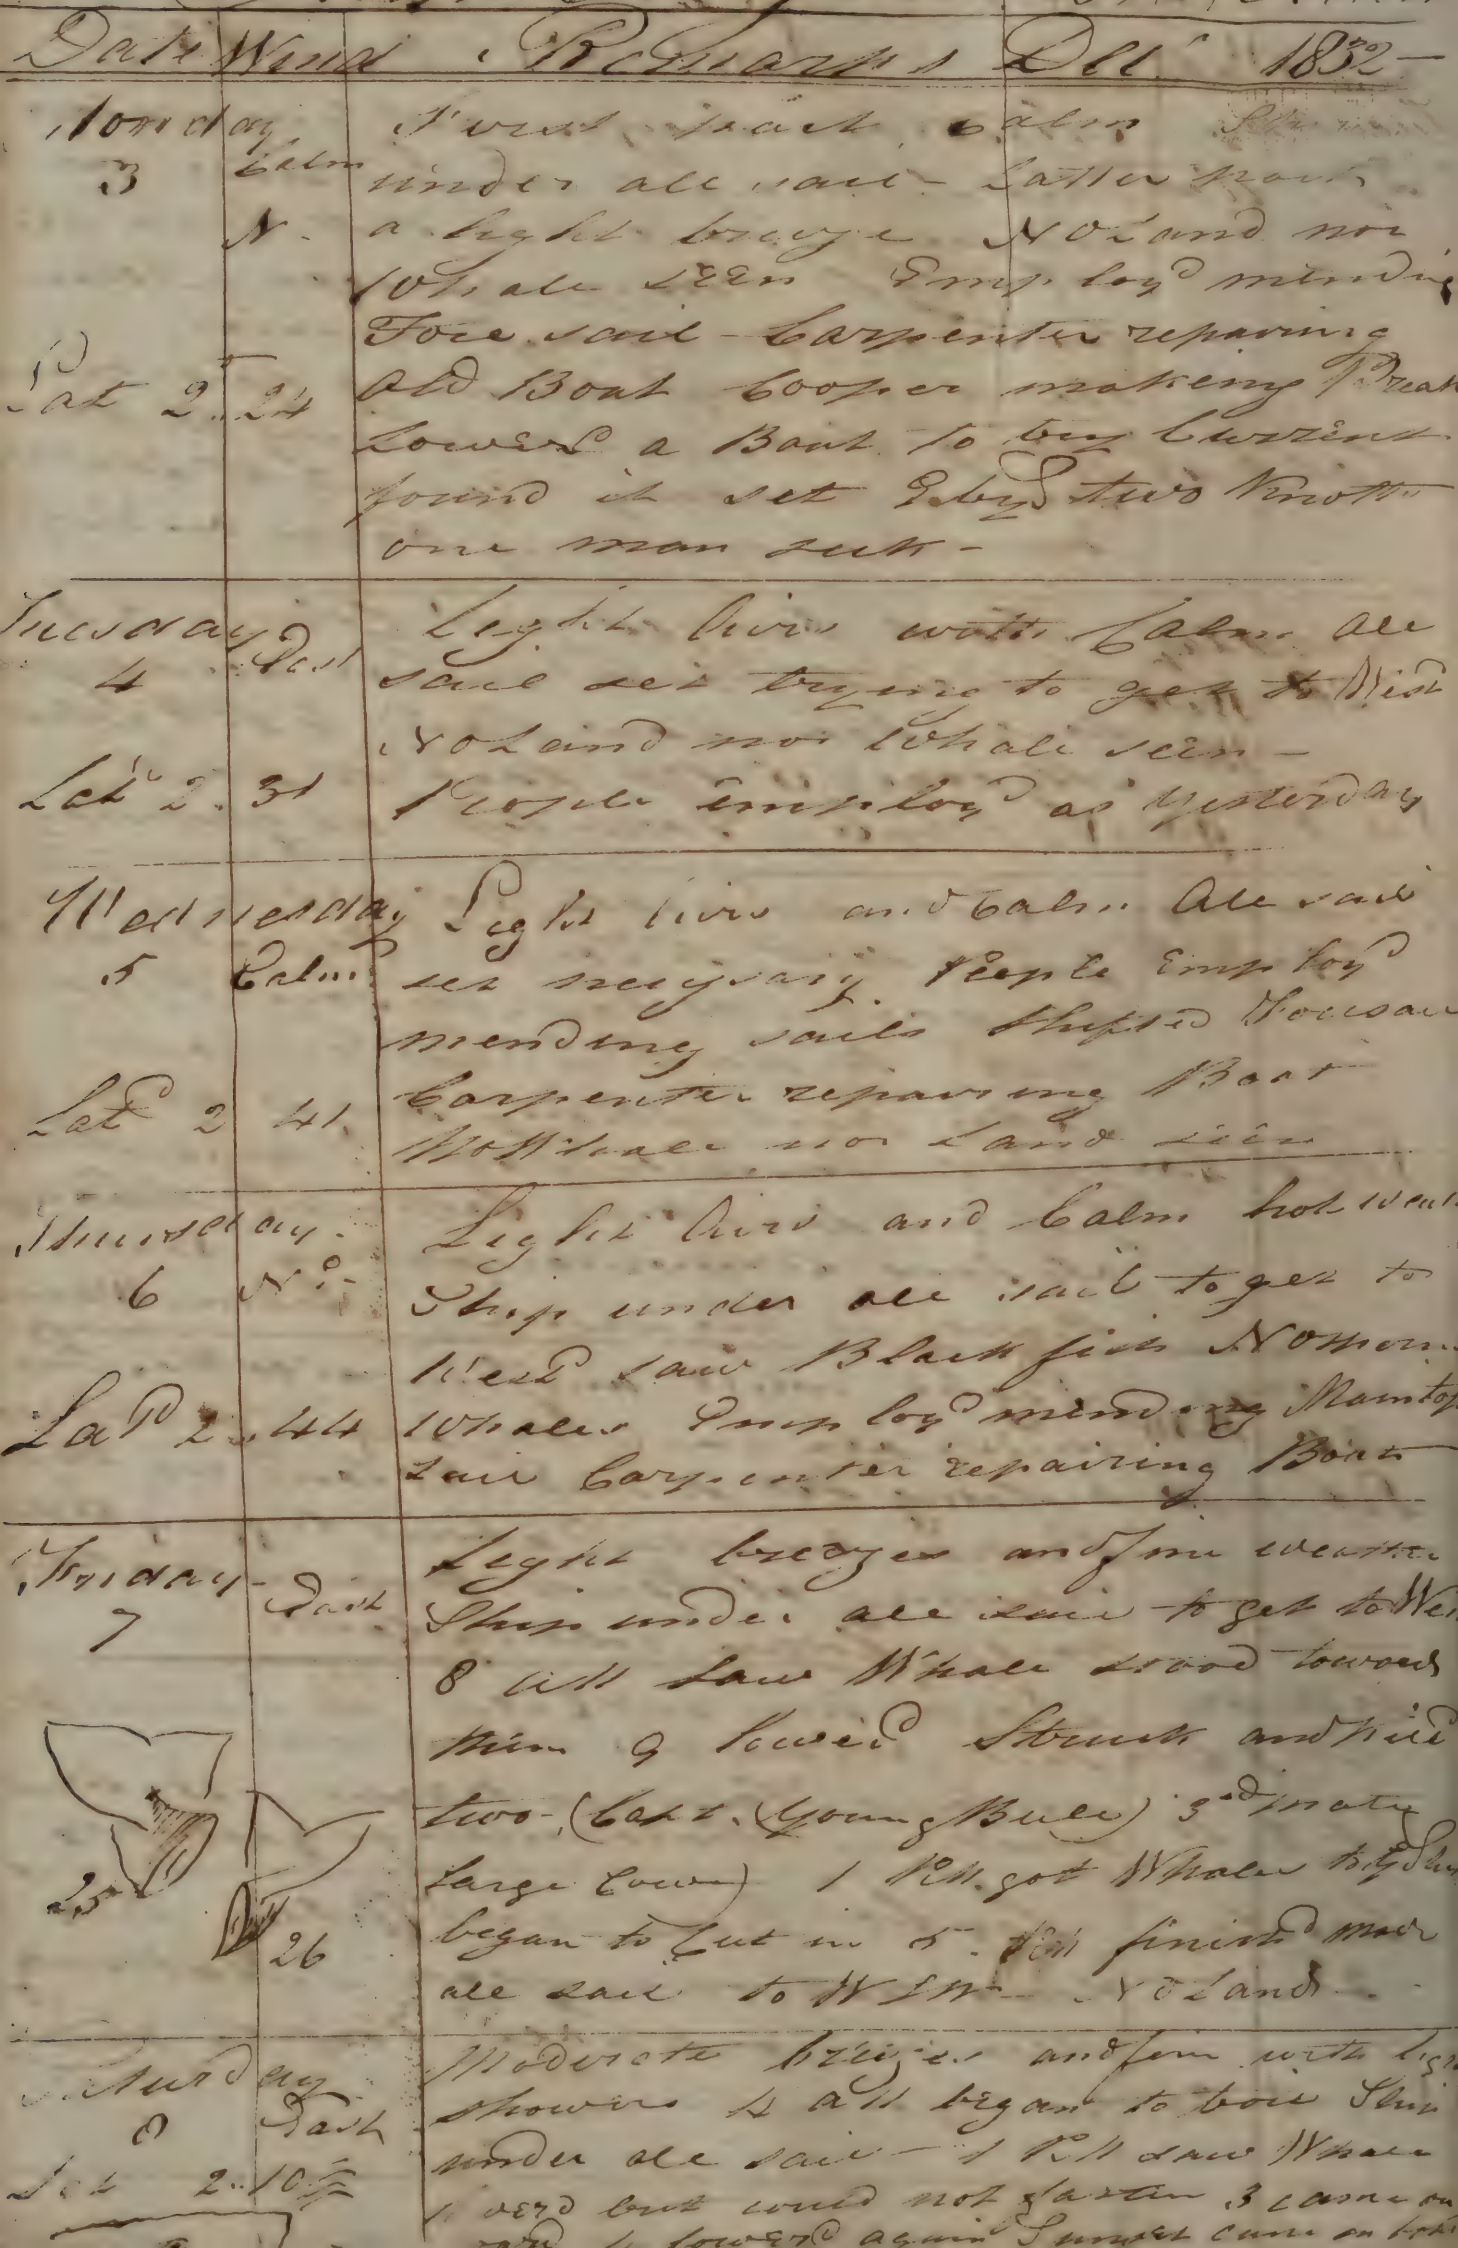 Date Wind Remarks Dec 1832
Monday First part Calm
3 Calm under all sail - Latter part
N. a light breeze No Land nor
Whale seen Employd mending
Fore sail - Carpenter repairing
Lat 2.. 24 Old Boat Cooper making
Lowerd a Boat to try Current
found it set two Knotts
one man sick -
Tuesday Light Airs with Calm All
4 East sail set trying to get to West
No Land nor Whale seen -
Latd 2. 31 People employd as yesterday
Wednesday Light Airs and Calm All sail
5 Calm set necysary. People Employd
mending sails Shifted
Latd 2 41. Carpenter repairing Boat
No Whale nor Land seen
Thursday. Light Airs and Calm hot
6 Ship under all sail to get to
West saw Black fish No
Latd 2.. 44 Whales Employd mending Maintop
sail Carpenter repairing Boat
Friday - Light breezes and fine weather
7 East Ship under all sail to get to
8 AM saw Whale stood towards
them 9 lowerd Struck and
two - (Capt. (Young Bull) 3rd mate
25 Large Cow) 1 PM. got Whales
26 began to Cut in 5. PM finishd
all sail to WSW - No Land
Saturday Moderate breezes and fine with
8 East showers 4 AM began to boil Ship
Lat 2.. 10 under all sail - 1 PM saw Whale
but could not fasten 3 came on
4 lowerd again Sunset came on